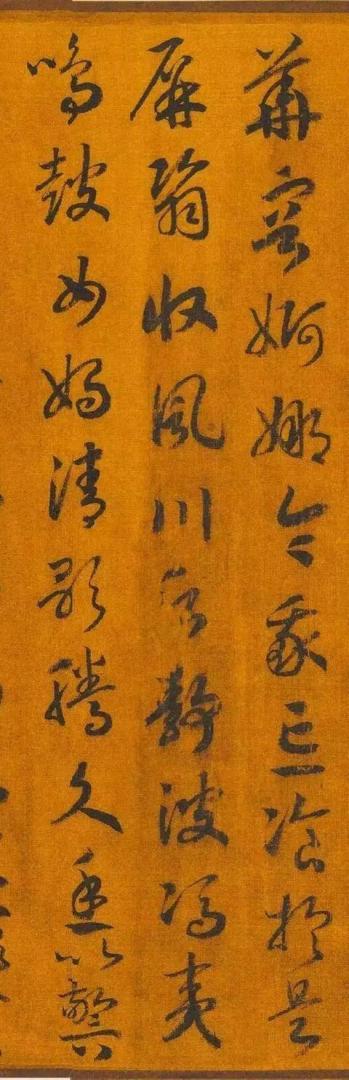 華容婀娜令我忘飡於是
屏翳收風川后静波馮夷
鳴鼓女媧清歌騰文魚以警